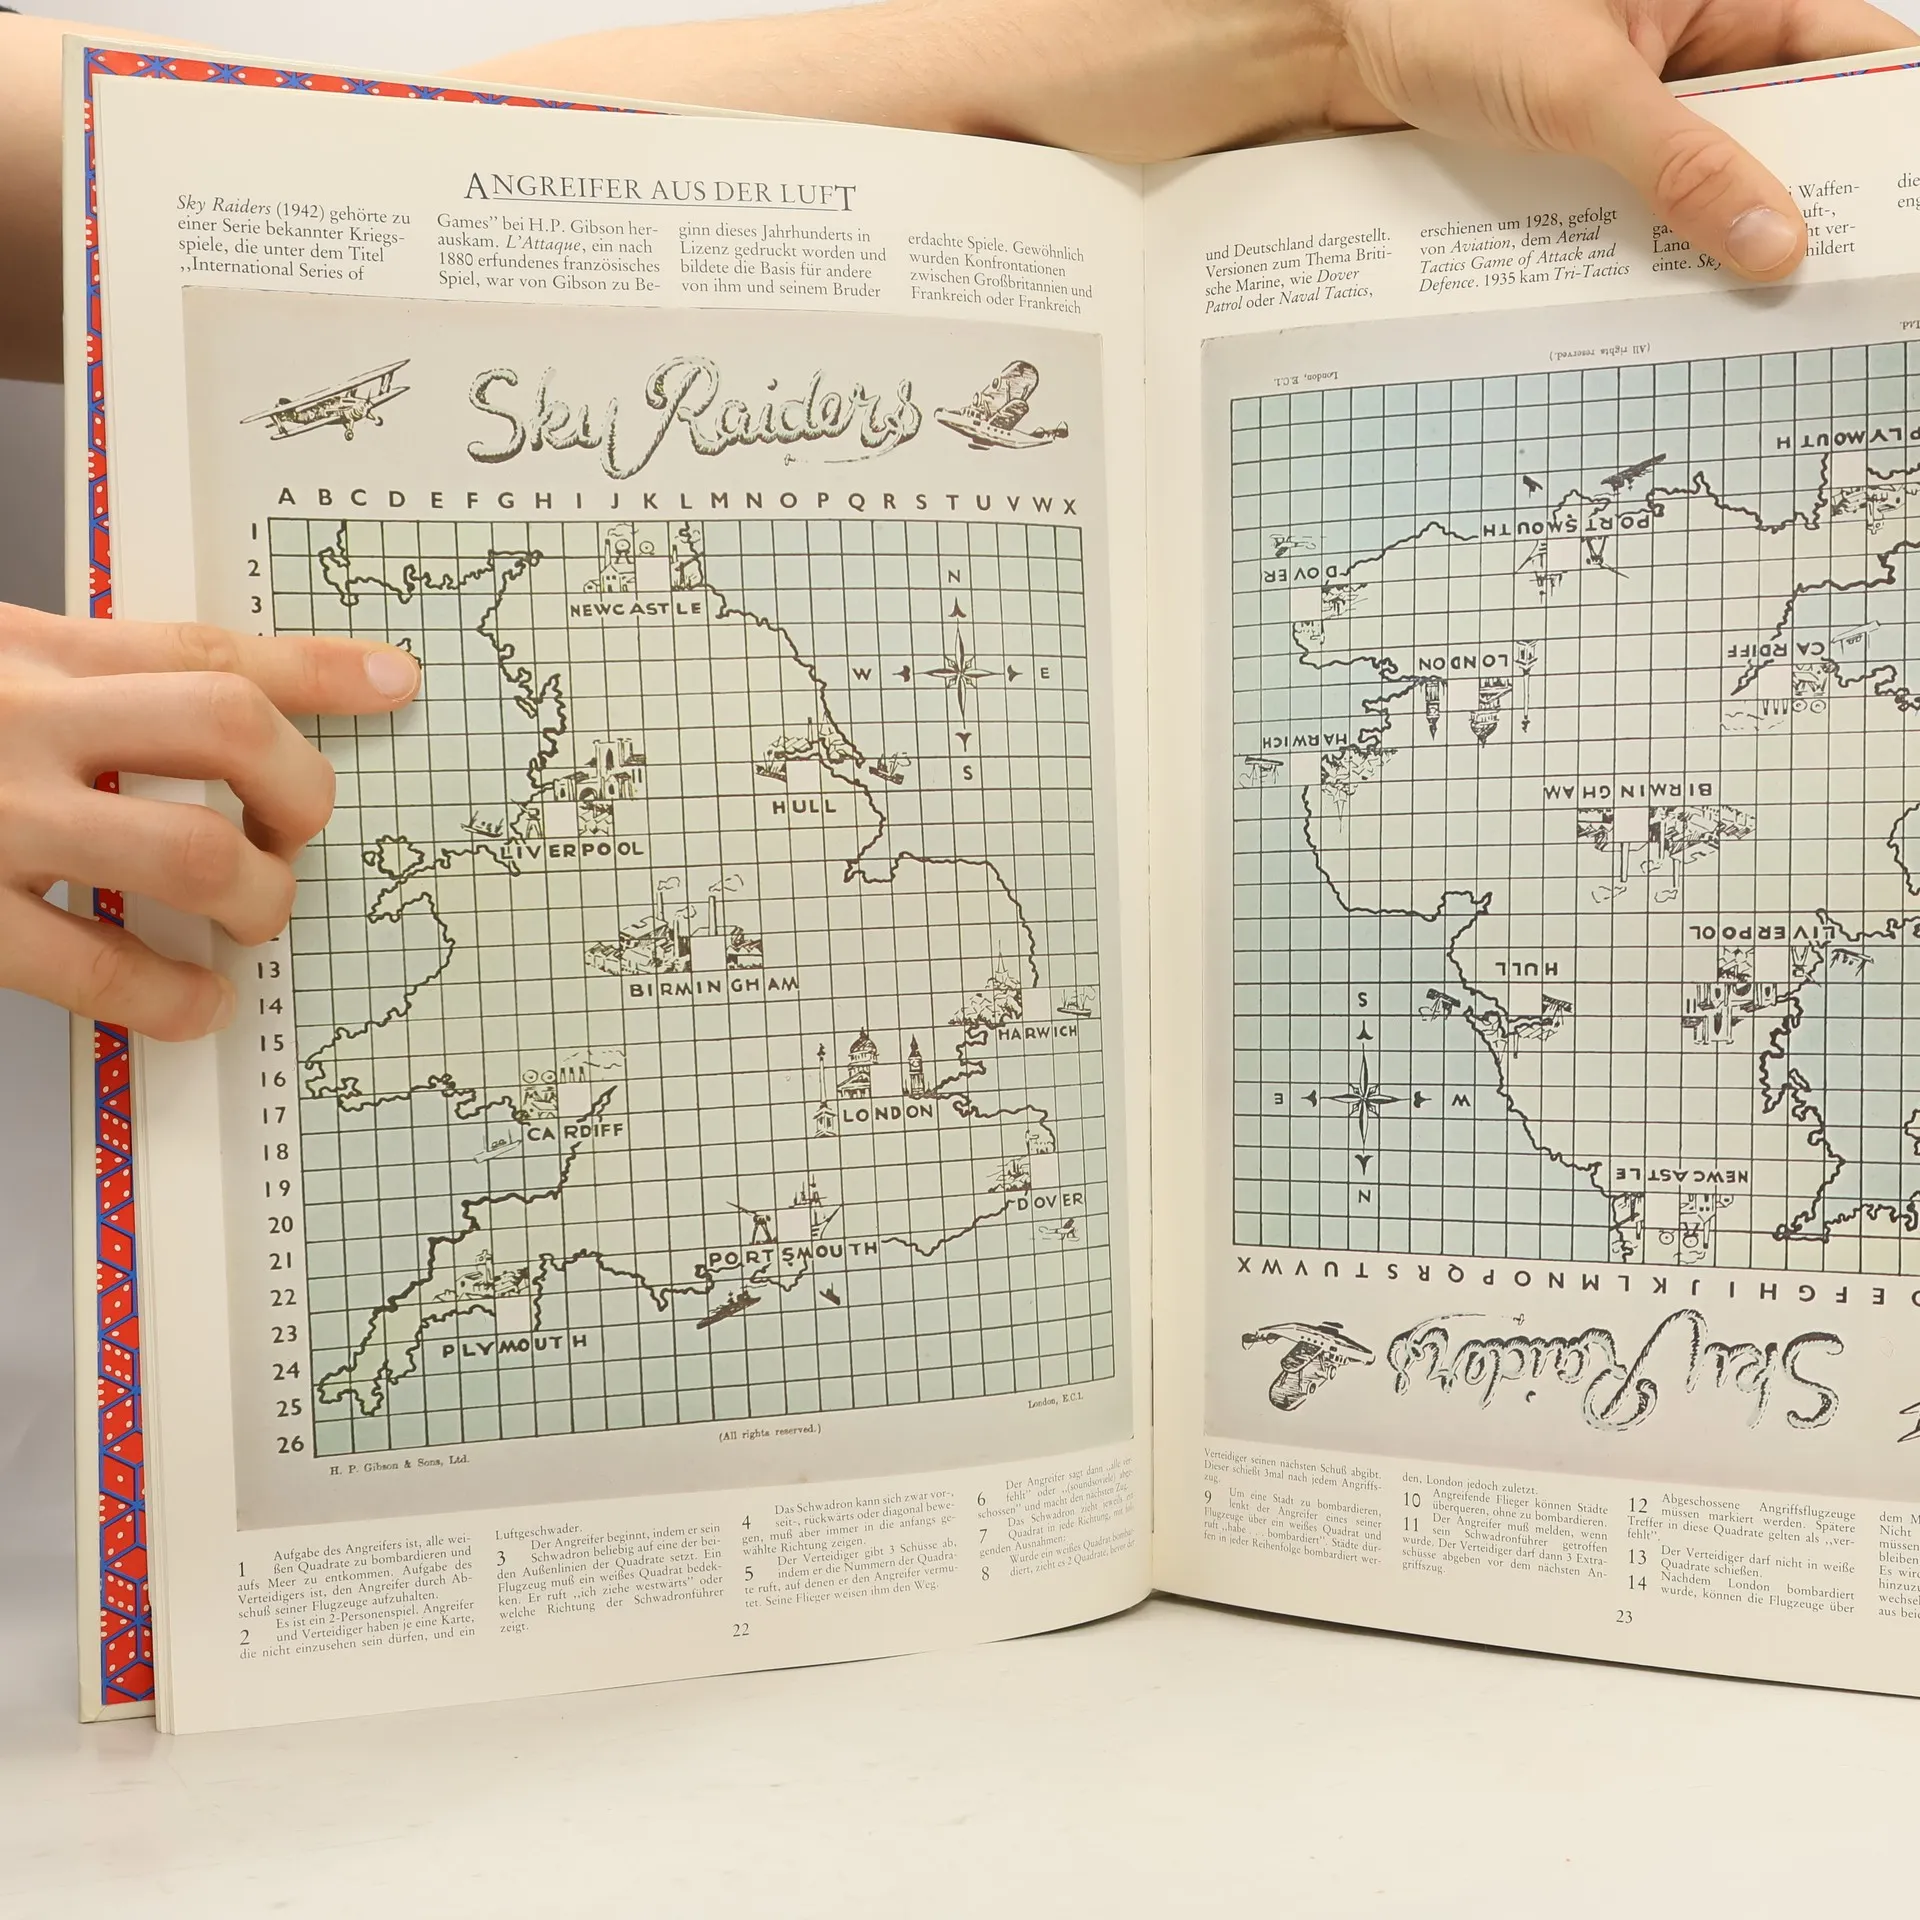 ANGREIFER AUS DER LUFT
Sky Raiders (1942) gehörte zu
einer Serie bekannter Kriegs-
spiele, die unter dem Titel
„International Series of
Games” bei H.P. Gibson her-
auskam. L'Attaque, ein nach
1880 erfundenes französisches
Spiel, war von Gibson zu Be-
ginn dieses Jahrhunderts in
Lizenz gedruckt worden und
bildete die Basis für andere
von ihm und seinem Bruder
erdachte Spiele. Gewöhnlich
wurden Konfrontationen
zwischen Großbritannien und
Frankreich oder Frankreich
Sky Raiders
A B C D E F G H I J K L M N O P Q R S T U V W X
1
2
3
13
14
15
16
17
18
19
20
21
22
23
24
25
26
NEWCASTLE
N
W
E
S
HULL
LIVERPOOL
BIRMINGHAM
HARWICH
LONDON
CARDIFF
DOVER
PORTSMOUTH
PLYMOUTH
H. P. Gibson & Sons, Ltd.
(All rights reserved.)
London, E.C.1.
1 Aufgabe des Angreifers ist, alle wei-
ßen Quadrate zu bombardieren und
aufs Meer zu entkommen. Aufgabe des
Verteidigers ist, den Angreifer durch Ab-
schuß seiner Flugzeuge aufzuhalten.
2 Es ist ein 2-Personenspiel. Angreifer
und Verteidiger haben je eine Karte,
die nicht einzusehen sein dürfen, und ein
Luftgeschwader.
3 Der Angreifer beginnt, indem er sein
Schwadron beliebig auf eine der bei-
den Außenlinien der Quadrate setzt. Ein
Flugzeug muß ein weißes Quadrat bedek-
ken. Er ruft „ich ziehe westwärts” oder
welche Richtung der Schwadronführer
zeigt.
4 Das Schwadron kann sich zwar vor-,
seit-, rückwärts oder diagonal bewe-
gen, muß aber immer in die anfangs ge-
wählte Richtung zeigen.
5 Der Verteidiger gibt 3 Schüsse ab,
indem er die Nummern der Quadra-
te ruft, auf denen er den Angreifer vermu-
tet. Seine Flieger weisen ihm den Weg.
6 Der Angreifer sagt dann „alle ver-
fehlt” oder „(soundsoviele) abge-
schossen” und macht den nächsten Zug.
7 Das Schwadron zieht jeweils ein
Quadrat in jede Richtung, mit
genden Ausnahmen.
8 Wurde ein weißes Quadrat bombar-
diert, zieht es 2 Quadrate, bevor der
22
und Deutschland dargestellt.
Versionen zum Thema Briti-
sche Marine, wie Dover
Patrol oder Naval Tactics,
erschienen um 1928, gefolgt
von Aviation, dem Aerial
Tactics Game of Attack and
Defence. 1935 kam Tri-Tactics
Waffen-
uft-,
ht ver-
Land
hildert
einte.
die
eng
Ltd.
(All rights reserved.)
London, E.C.1.
PLYMOUTH
PORTSMOUTH
DOVER
CARDIFF
LONDON
HARWICH
BIRMINGHAM
LIVERPOOL
HULL
S
E
W
N
NEWCASTLE
X W V U T S R Q P O N M L K J I H G F E
Sky Raiders
Verteidiger seinen nächsten Schuß abgibt.
Dieser schießt 3mal nach jedem Angriffs-
zug.
9 Um eine Stadt zu bombardieren,
lenkt der Angreifer eines seiner
Flugzeuge über ein weißes Quadrat und
ruft „habe . . . bombardiert”. Städte dür-
fen in jeder Reihenfolge bombardiert wer-
den, London jedoch zuletzt.
10 Angreifende Flieger können Städte
überqueren, ohne zu bombardieren.
11 Der Angreifer muß melden, wenn
sein Schwadronführer getroffen
wurde. Der Verteidiger darf dann 3 Extra-
schüsse abgeben vor dem nächsten An-
griffszug.
12 Abgeschossene Angriffsflugzeuge
müssen markiert werden. Spätere
Treffer in diese Quadrate gelten als „ver-
fehlt”.
13 Der Verteidiger darf nicht in weiße
Quadrate schießen.
14 Nachdem London bombardiert
wurde, können die Flugzeuge über
dem M
Nicht
müssen
bleiben
Es wird
hinzuz
wechsel
aus bei
23